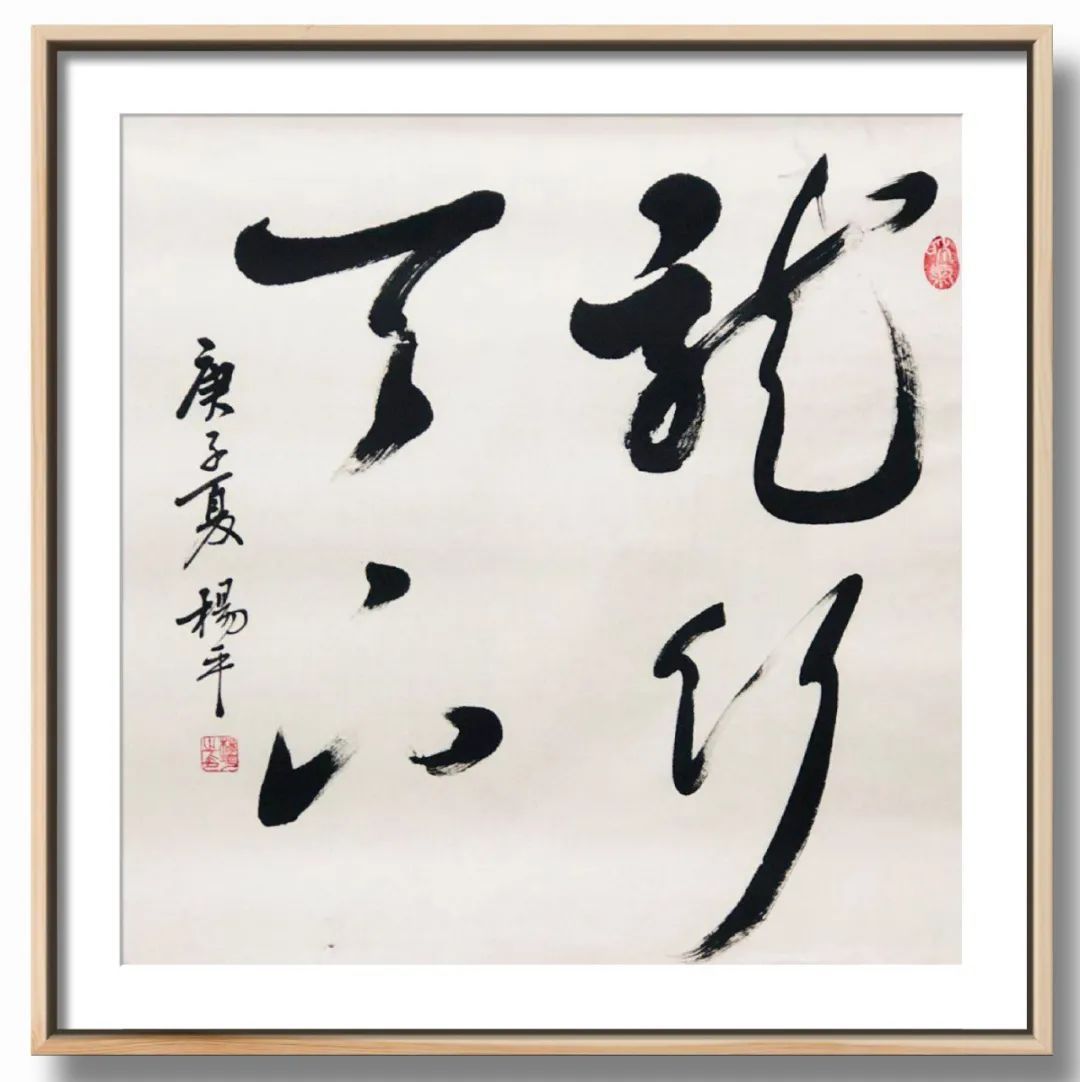 龍行
天下
庚子夏 楊平